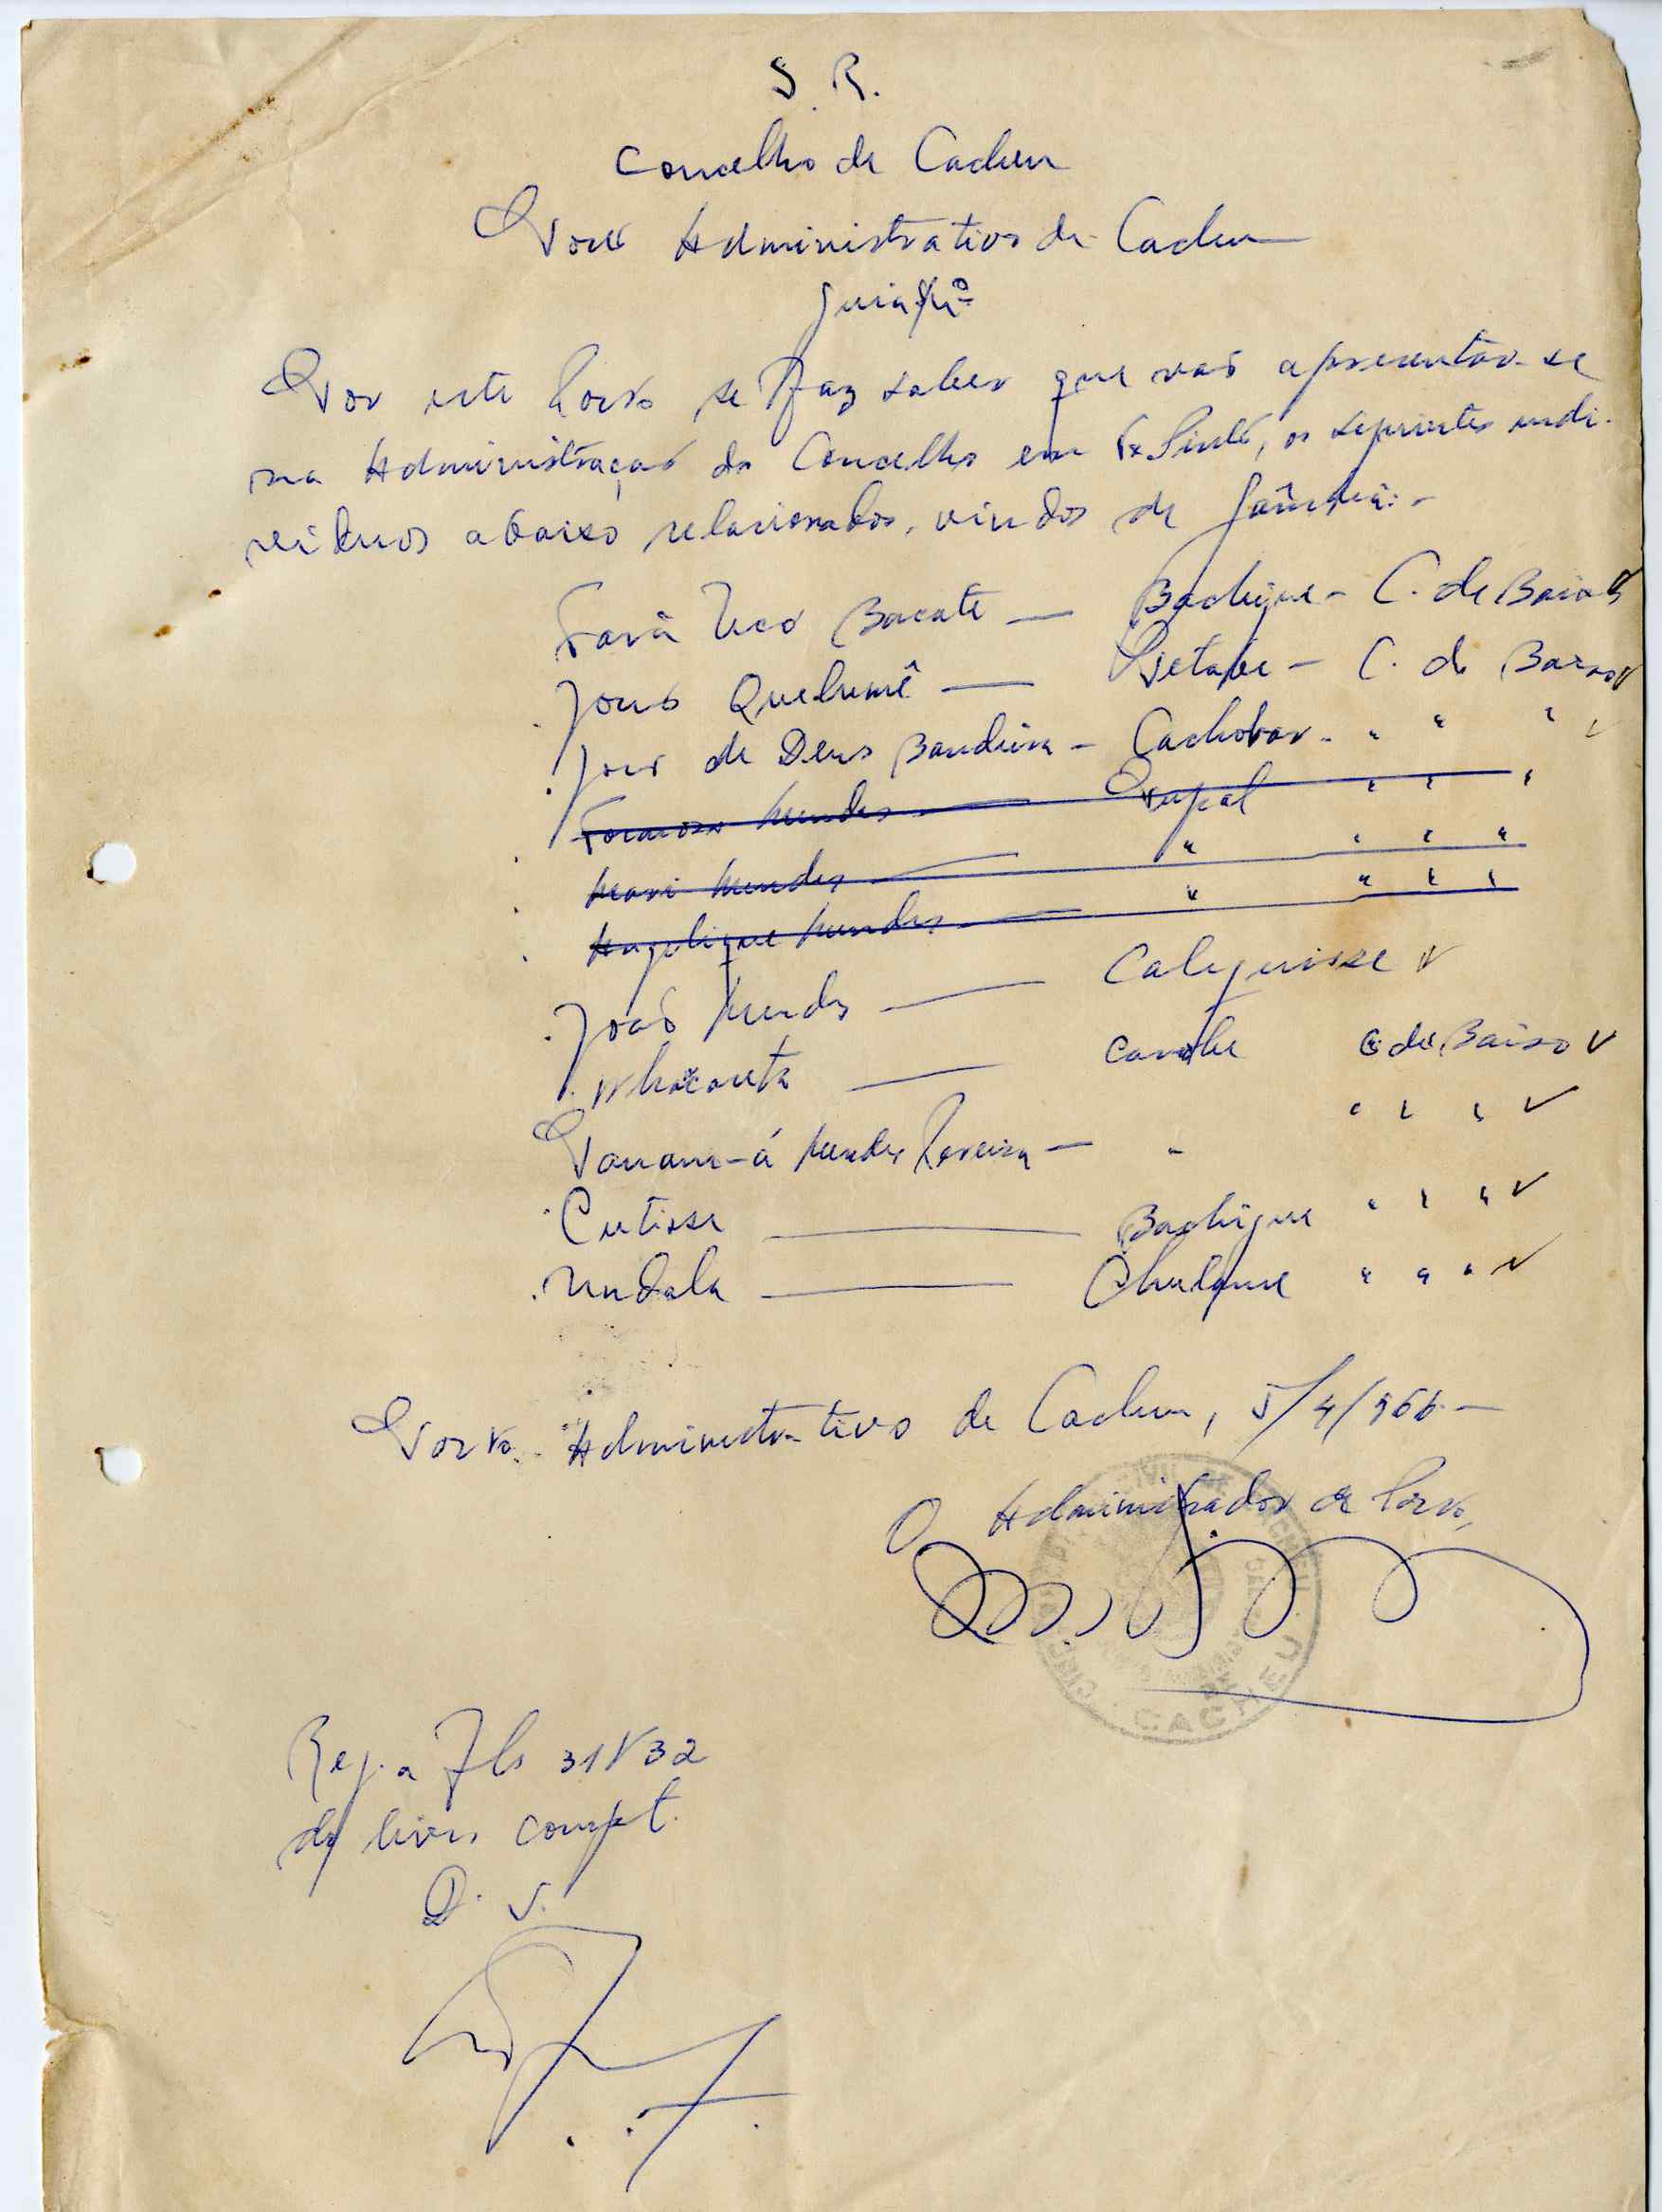 S. R.
Concelho de Cacheu
Posto Administrativo de Cacheu
Guia Nº
Por este Posto se faz saber que vão apresentar-se
na Administração do Concelho em Tx Pinto, os seguintes indi-
viduos abaixo relacionados, vindos de Gâmbia:-
Bacate — Bachique - C. de Baixo
João Quelumê — Petabe - C. de Baixo
João de Deus Bandeira - Cachobar - " " "
Formoso Mendes — Pupal " " "
Mendes — " " " "
Angelique Mendes — " " " "
João Mendes — Calequisse
— Canobe C. de Baixo
Mendes Pereira — " " " "
Cutisse — Bachique " " "
Undala — Chulame " " "
Posto Administrativo de Cacheu, 5/4/966 -
O Administrador de Posto,
CACHEU
Reg. a Fls 31V32
do livro compt.